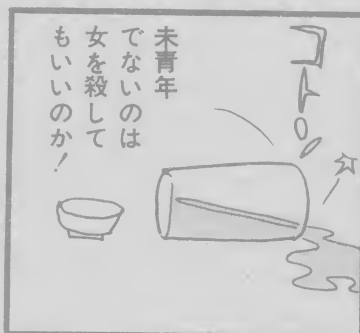 コトッ
未青年
でないのは
女を殺して
もいいのか!